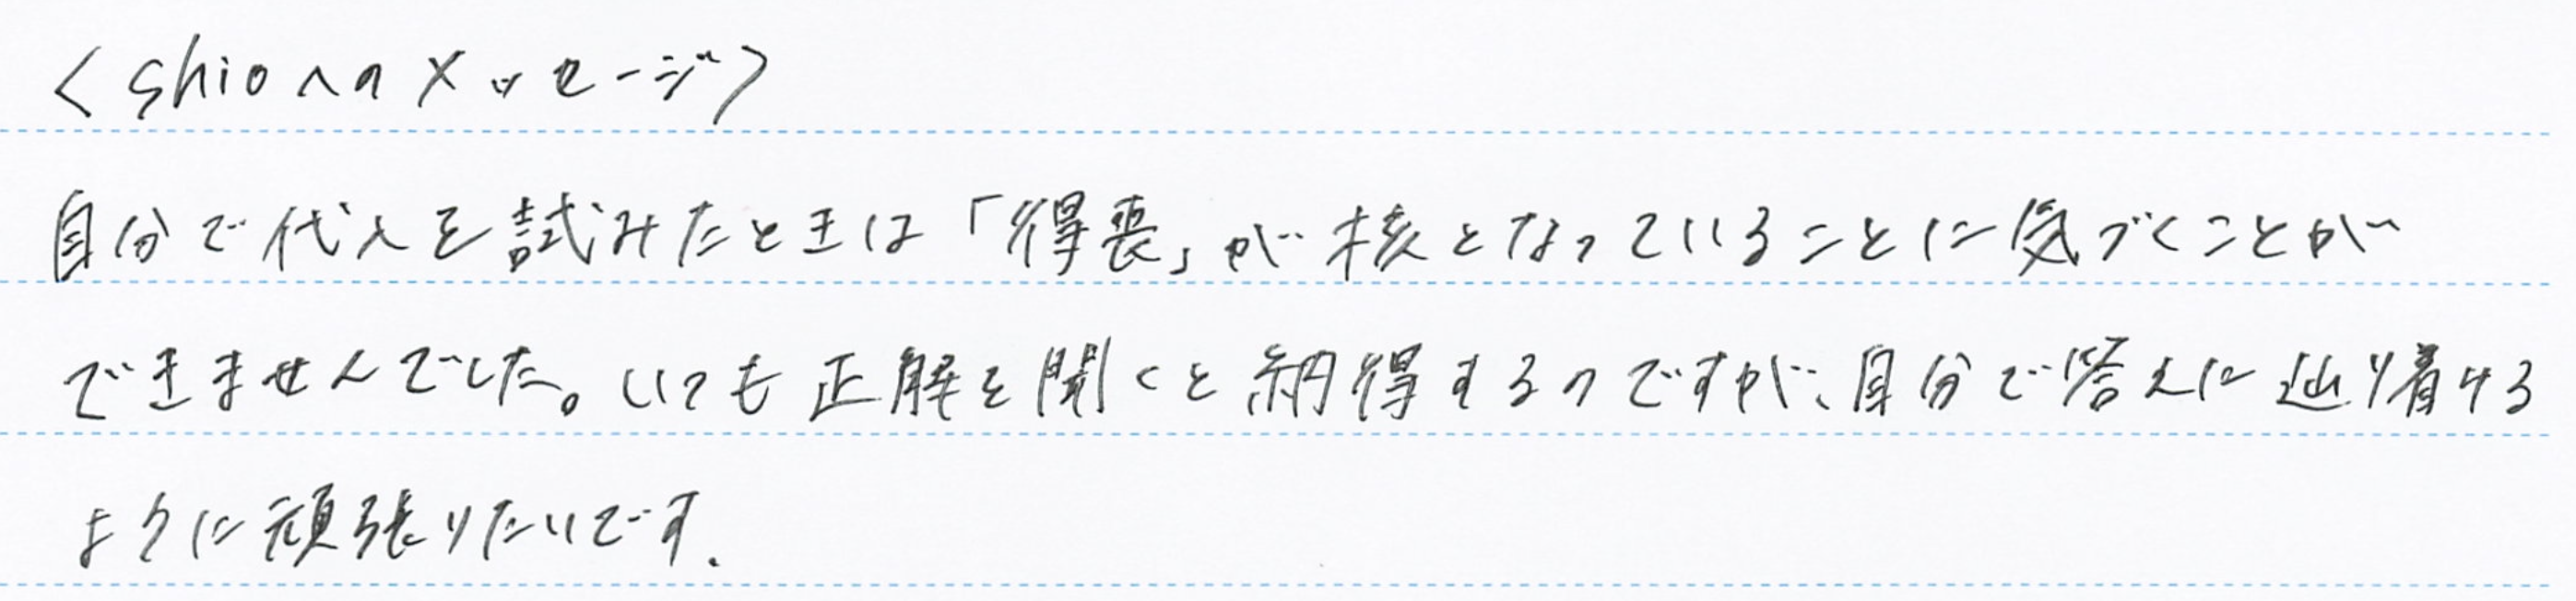 <shionaメッセージ>
自分で代入を試みたときは「得喪」が核となっていることに気づくことが
できませんでした。いつも正解を聞くと納得するのですが、自分で答えに辿り着ける
ように頑張りたいです.